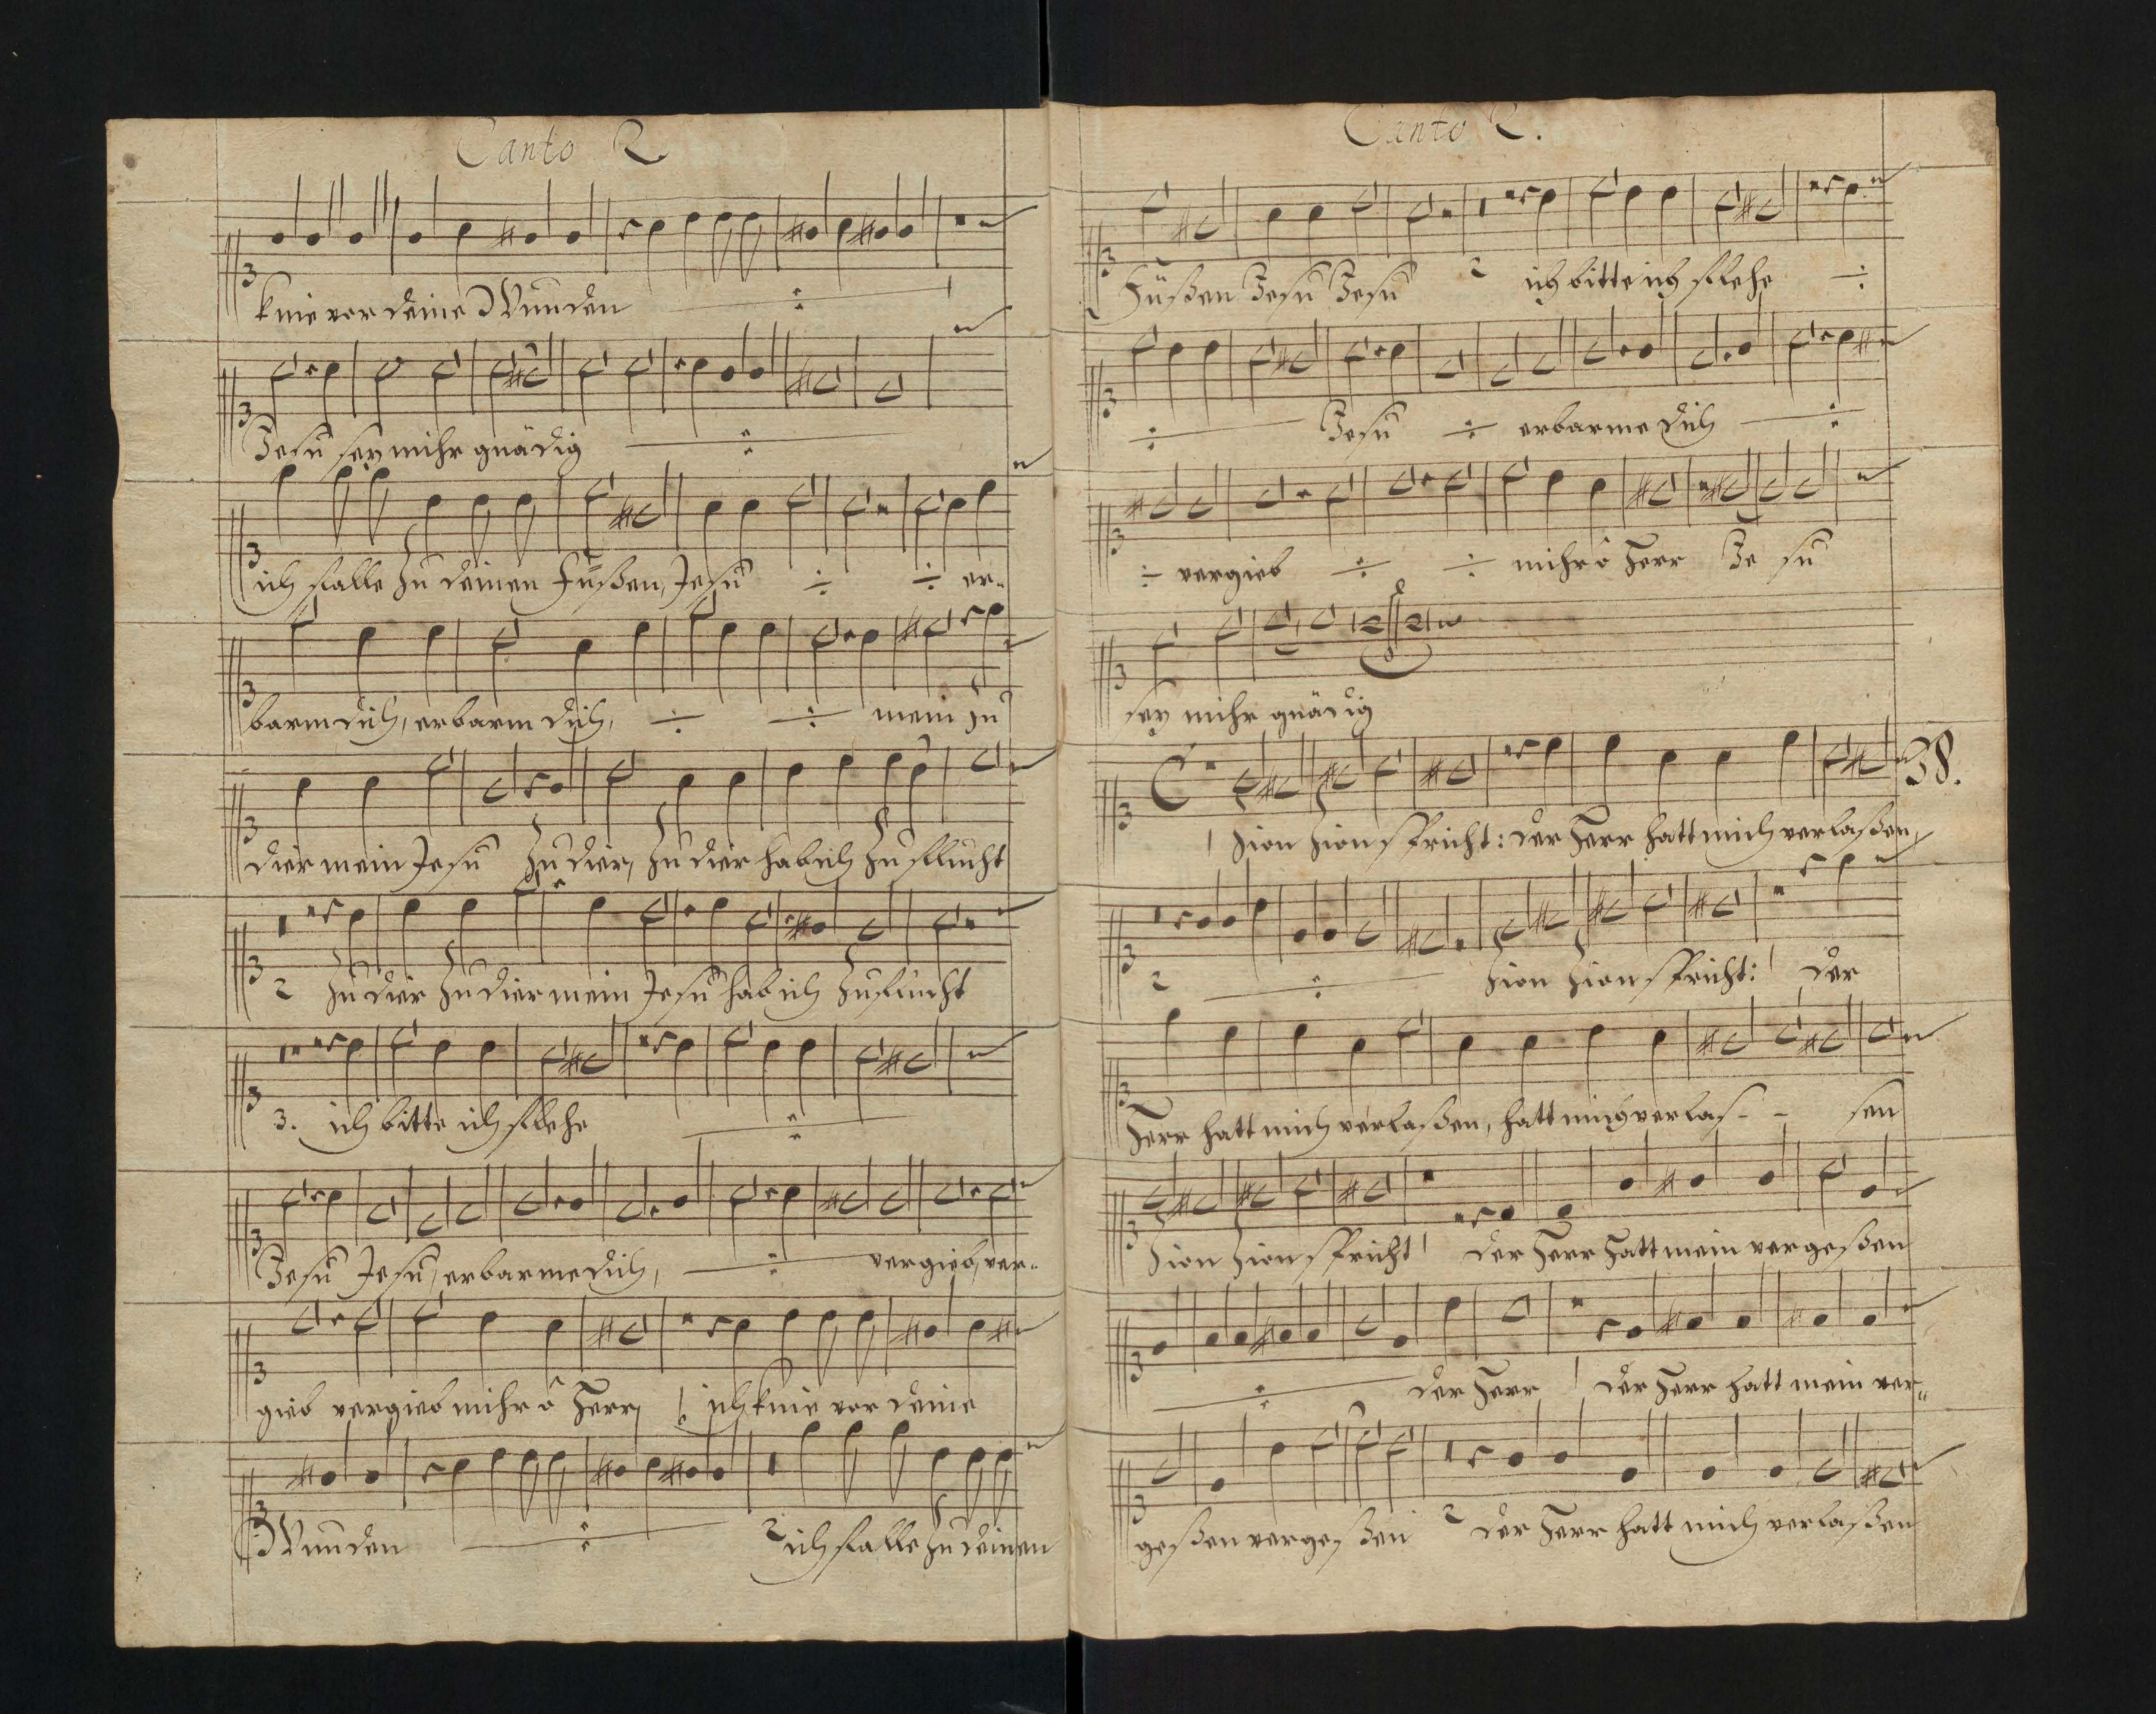 Canto 2.
knie vor deine Wunden ÷
Jesu sey mihr gnädig ÷
ich falle zu deinen Füßen, Jesu ÷ ÷ er-
barm dich, erbarm dich, ÷ ÷ mein zu
dier mein Jesu zu dier, zu dier hab ich zuflucht
2 zu dier zu dier mein Jesu hab ich zuflucht
3. ich bitte ich flehe ÷
Jesu Jesu, erbarme dich, ÷ vergieb, ver-
gieb vergieb mihr ô Herr, ich knie vor deine
Wunden ÷ 2 ich falle zu deinen
Canto 2.
Füßen Jesu Jesu 2 ich bitte ich flehe ÷
÷ Jesu ÷ erbarme dich ÷
÷ vergieb ÷ ÷ mihr ô Herr Je su
sey mihr gnädig
38.
1 Zion Zion spricht: der Herr hatt mich verlaßen,
2 ÷ Zion Zion spricht: 1 der
Herr hatt mich verlaßen, hatt mich verlas - - sen
Zion Zion spricht 1 der Herr hatt mein vergeßen
÷ der Herr 1 der Herr hatt mein ver-
geßen vergeßen 2 der Herr hatt mich verlaßen